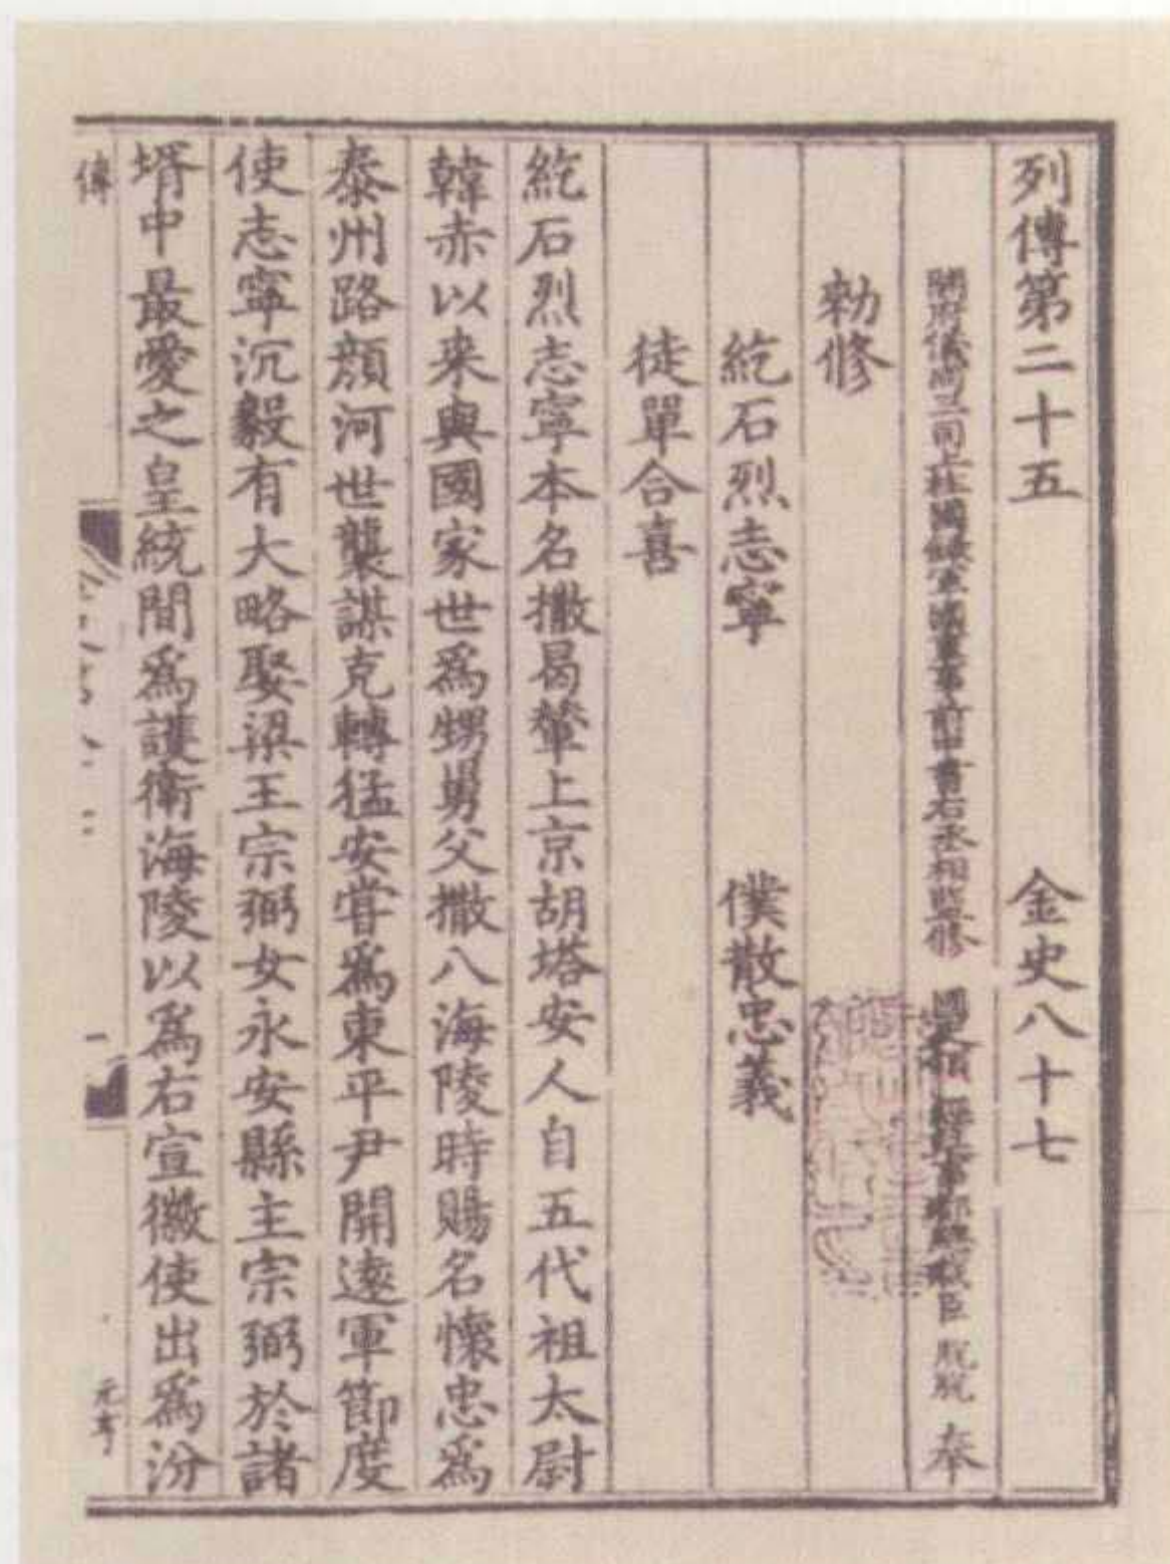 列傳第二十五 金史八十七
開府儀同三司上柱國錄軍國重事前中書右丞相監修 國史領 經筵事都總裁臣 脱脱 奉
勑修
紇石烈志寧 僕散忠義
徒單合喜
紇石烈志寧本名撒曷輦上京胡塔安人自五代祖太尉
韓赤以来與國家世爲甥舅父撒八海陵時賜名懷忠爲
泰州路顔河世襲謀克轉猛安甞爲東平尹開逺軍節度
使志寧沉毅有大略娶梁王宗弼女永安縣主宗弼於諸
壻中最愛之皇統間爲護衛海陵以爲右宣徽使出爲汾
傳
一
元亨